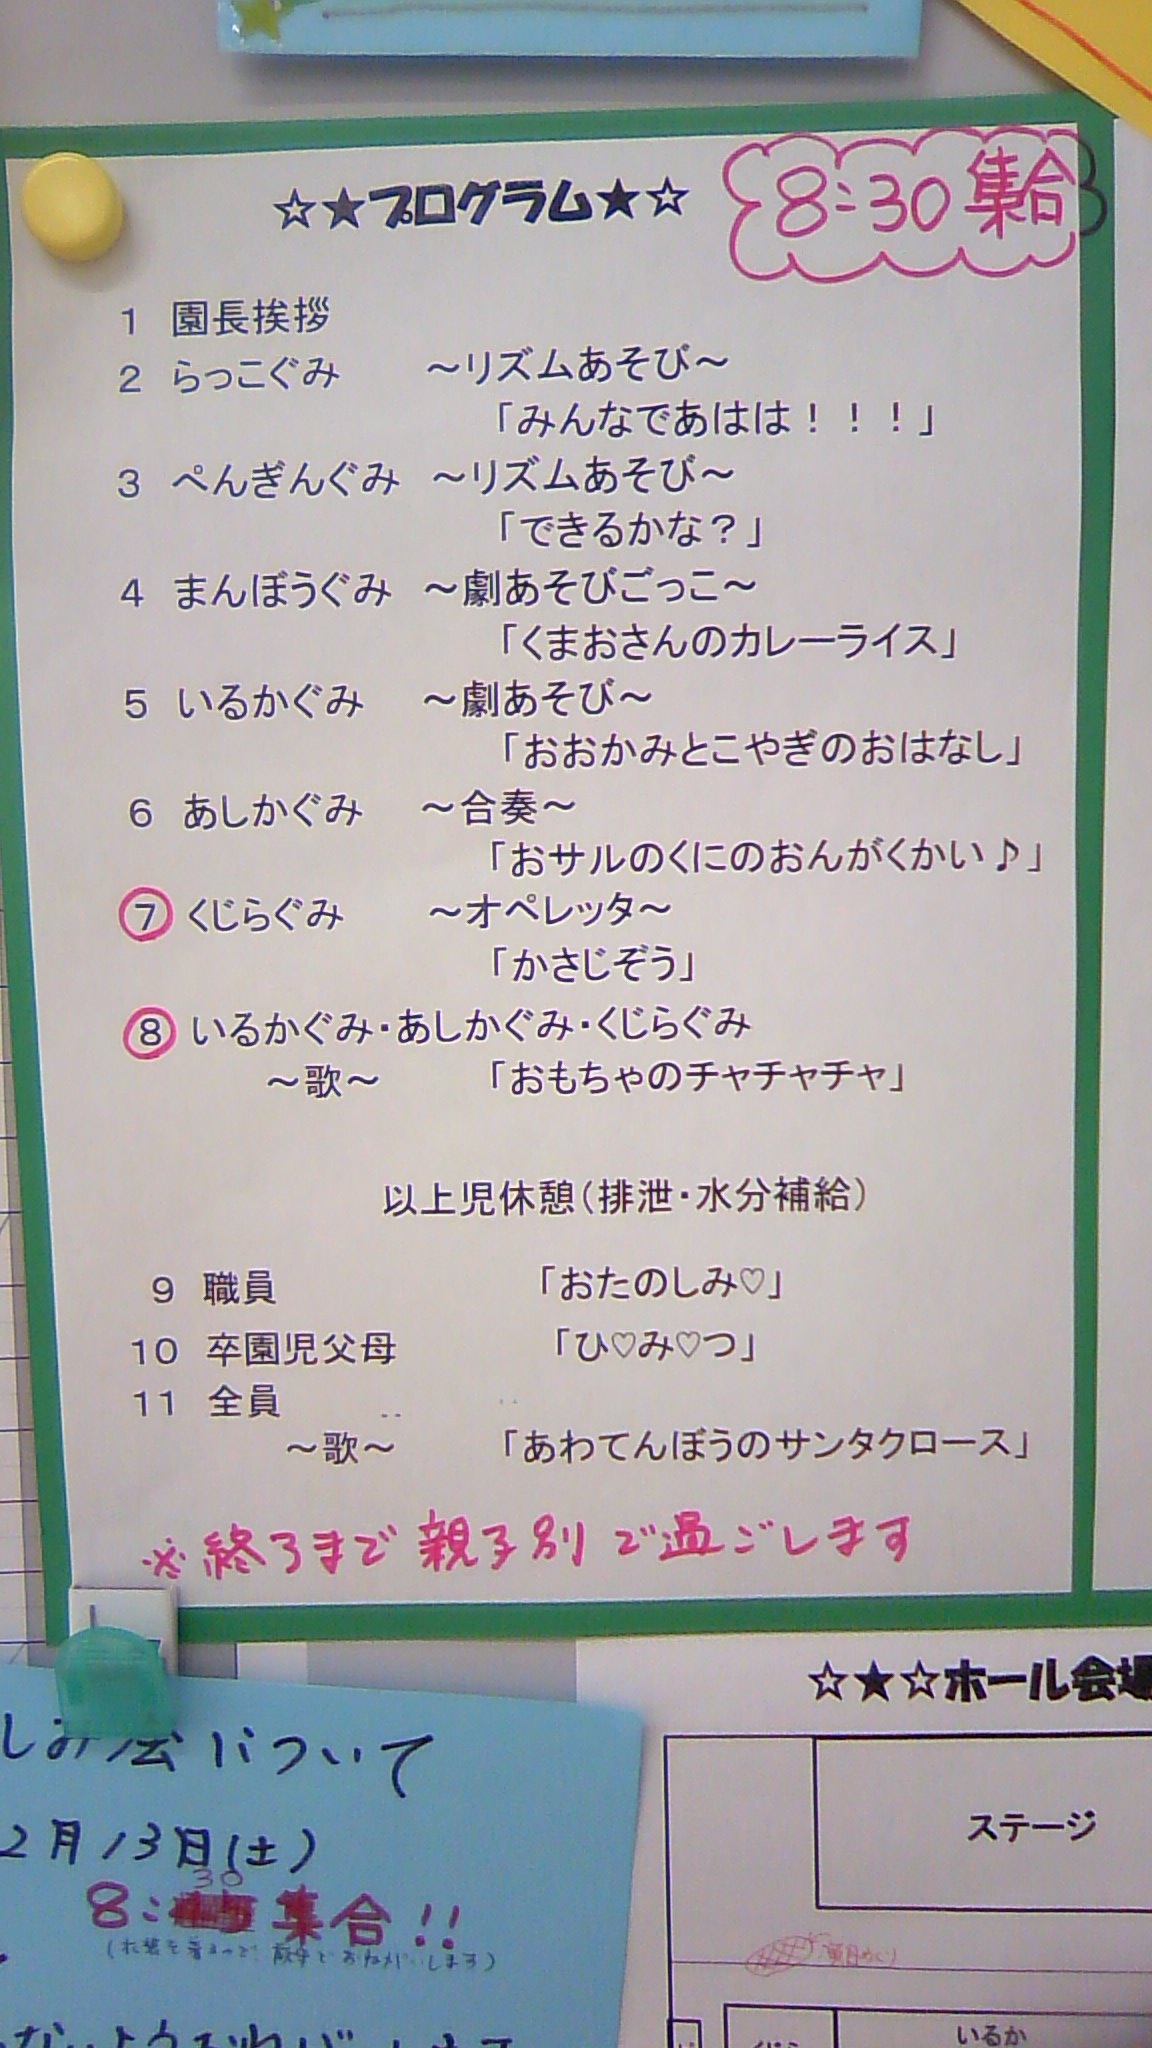 ☆★プログラム★☆
8:30 集合
1 園長挨拶
2 らっこぐみ ～リズムあそび～
「みんなであはは！！！」
3 ぺんぎんぐみ ～リズムあそび～
「できるかな？」
4 まんぼうぐみ ～劇あそびごっこ～
「くまおさんのカレーライス」
5 いるかぐみ ～劇あそび～
「おおかみとこやぎのおはなし」
6 あしかぐみ ～合奏～
「おサルのくにのおんがくかい♪」
⑦ くじらぐみ ～オペレッタ～
「かさじぞう」
⑧ いるかぐみ・あしかぐみ・くじらぐみ
～歌～ 「おもちゃのチャチャチャ」
以上児休憩（排泄・水分補給）
9 職員 「おたのしみ♡」
10 卒園児父母 「ひ♡み♡つ」
11 全員
～歌～ 「あわてんぼうのサンタクロース」
※終了まで親子別で過ごします
しみ会について
2月13日(土)
8:30 集合!!
☆★☆ホール会場
ステージ
いるか